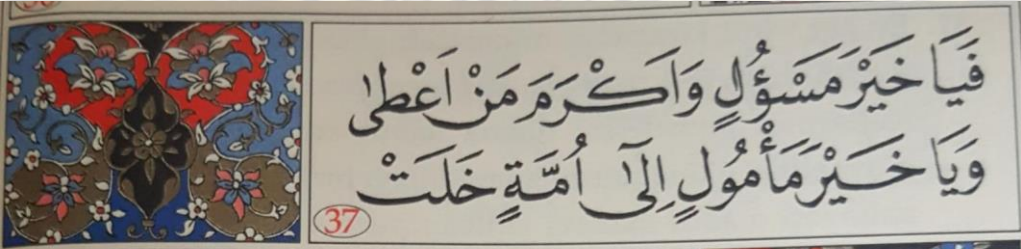 فَيَا خَيْرَ مَسْؤُلٍ وَاَكْرَمَ مَنْ اَعْطٰى
وَيَا خَيْرَ مَأْمُولٍ اِلٰٓى اُمَّةٍ خَلَتْ
37